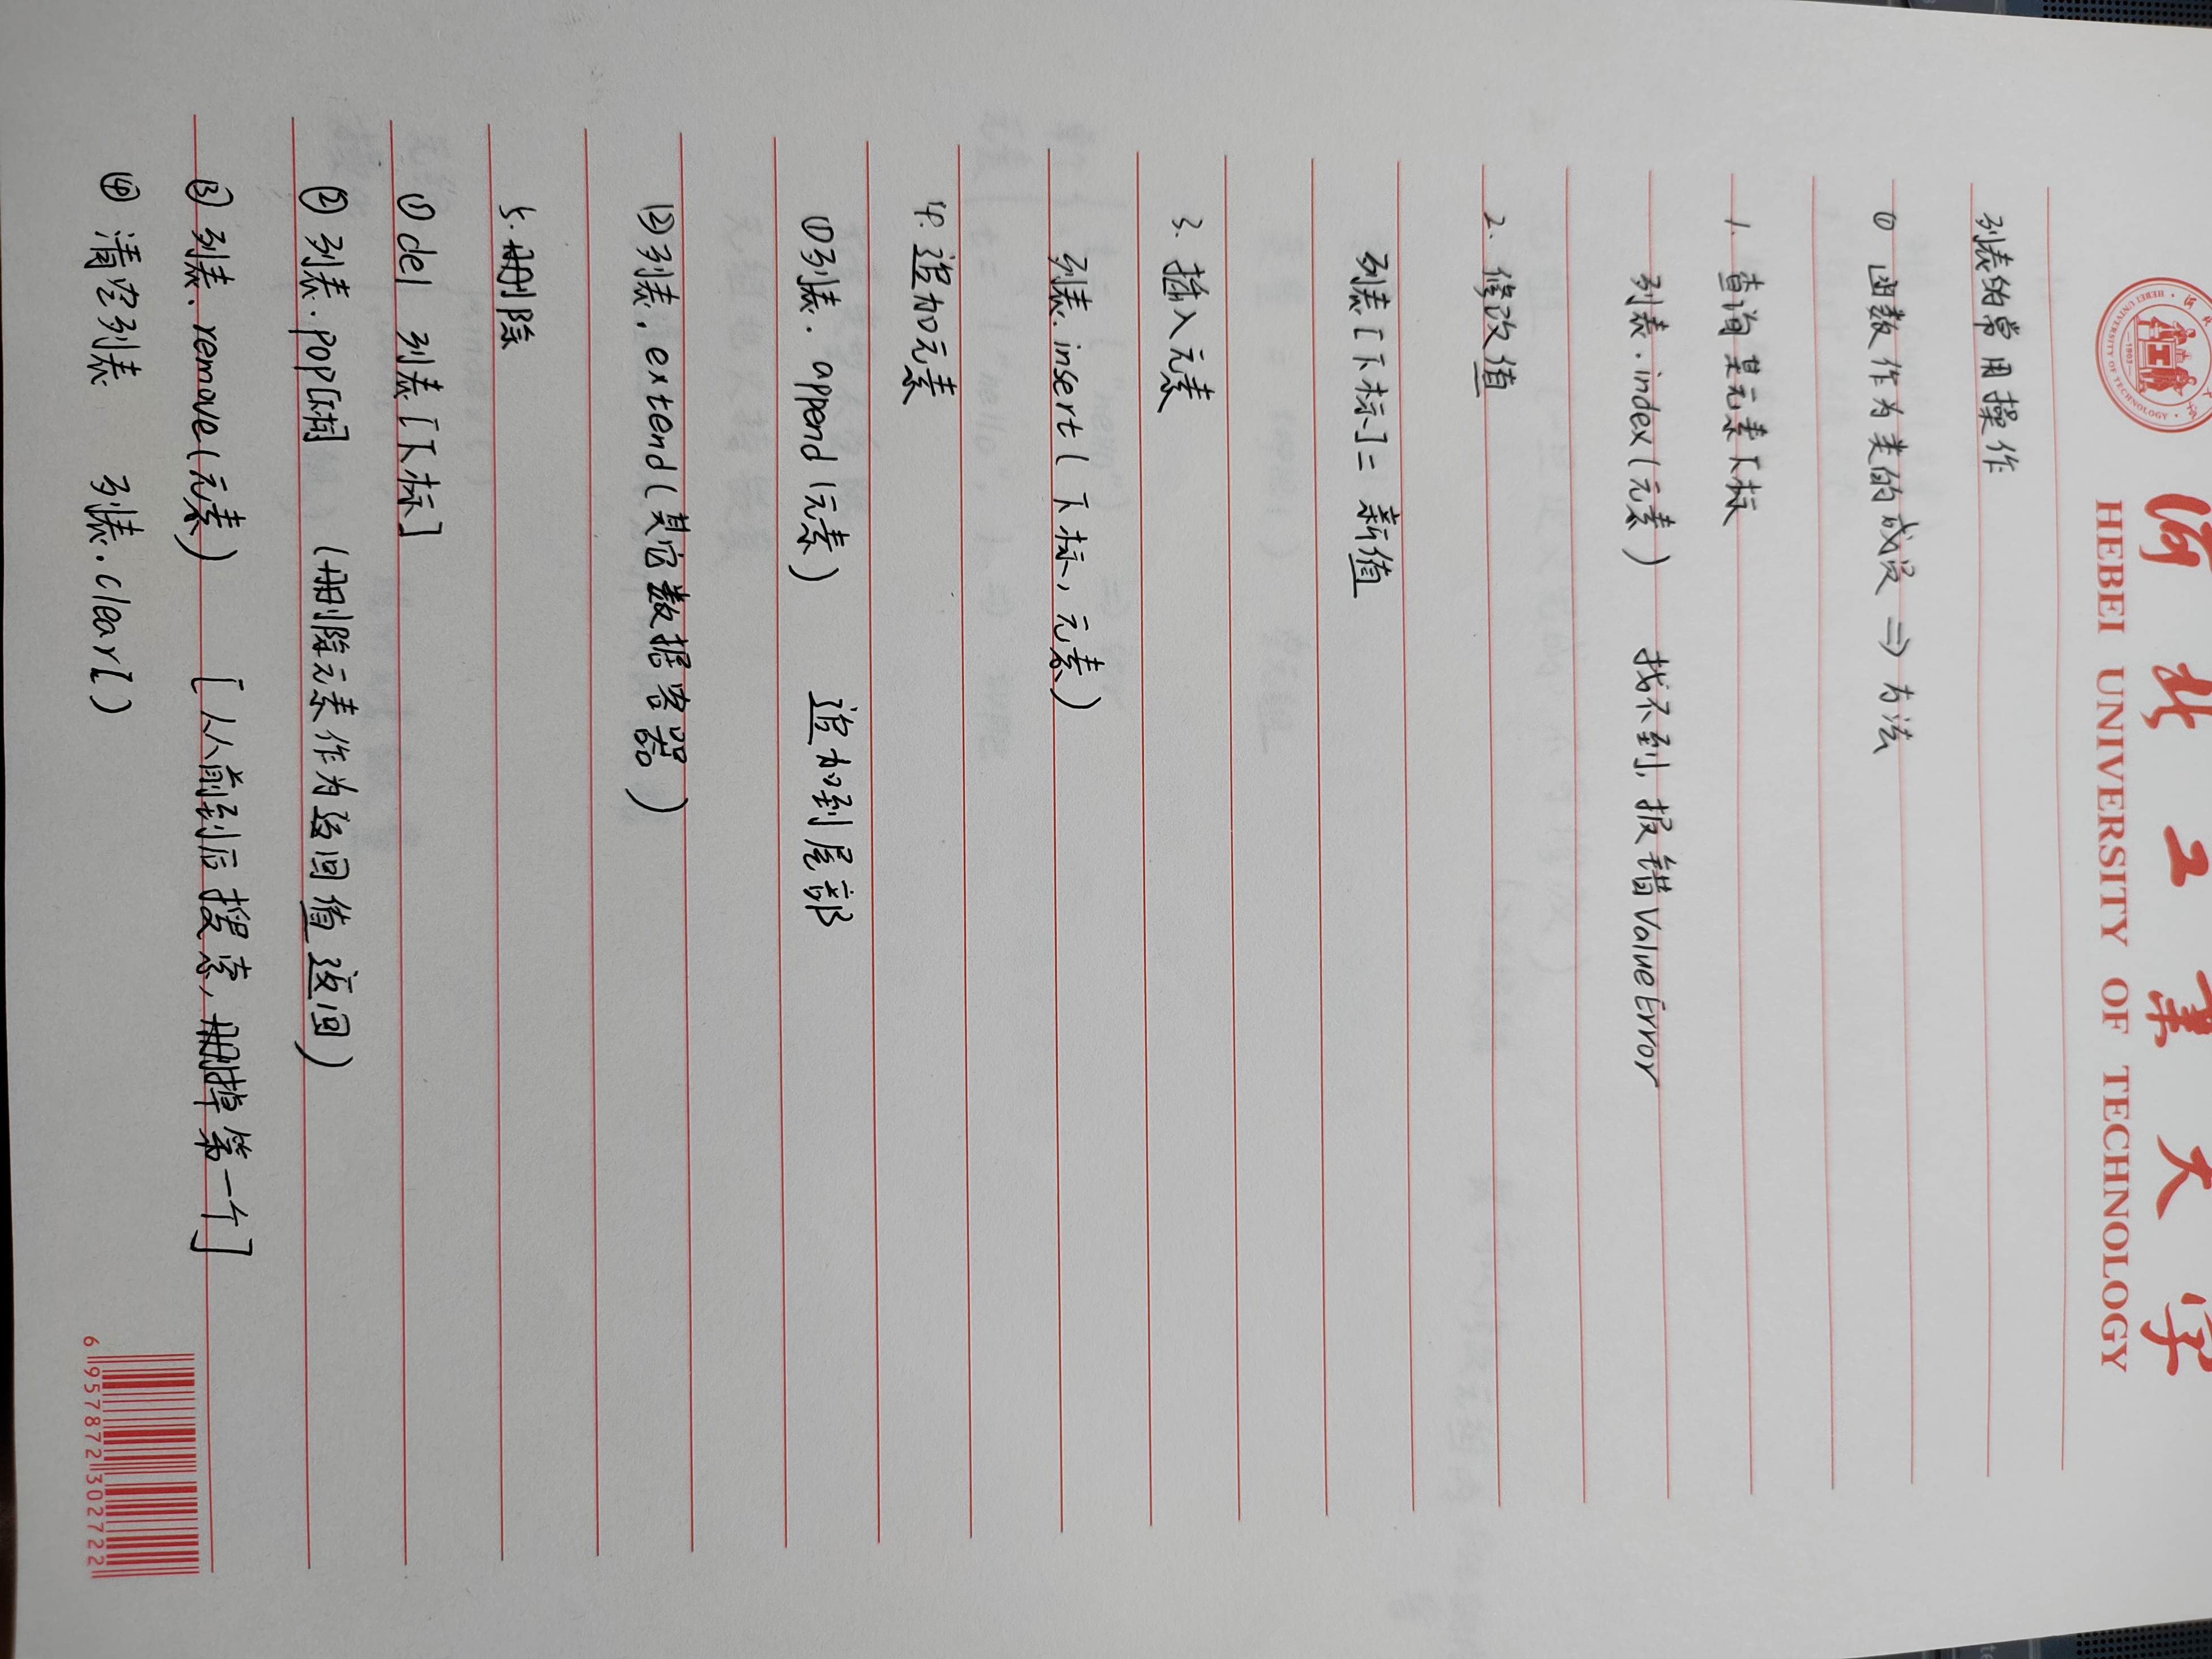 河北工业大学
HEBEI UNIVERSITY OF TECHNOLOGY
HEBEI UNIVERSITY OF TECHNOLOGY
1903
列表的常用操作
① 函数作为类的成员 ⇒ 方法
1. 查询某元素下标
列表.index(元素) 找不到, 报错ValueError
2. 修改值
列表[下标]= 新值
3. 插入元素
列表.insert(下标, 元素)
4. 追加元素
①列表.append(元素) 追加到尾部
②列表.extend(其它数据容器)
5. 删除
① del 列表[下标]
② 列表.pop[下标] (删除元素作为返回值返回)
③ 列表.remove(元素) [从前到后搜索, 删掉第一个]
④ 清空列表 列表.clear[)
6 957872 302722